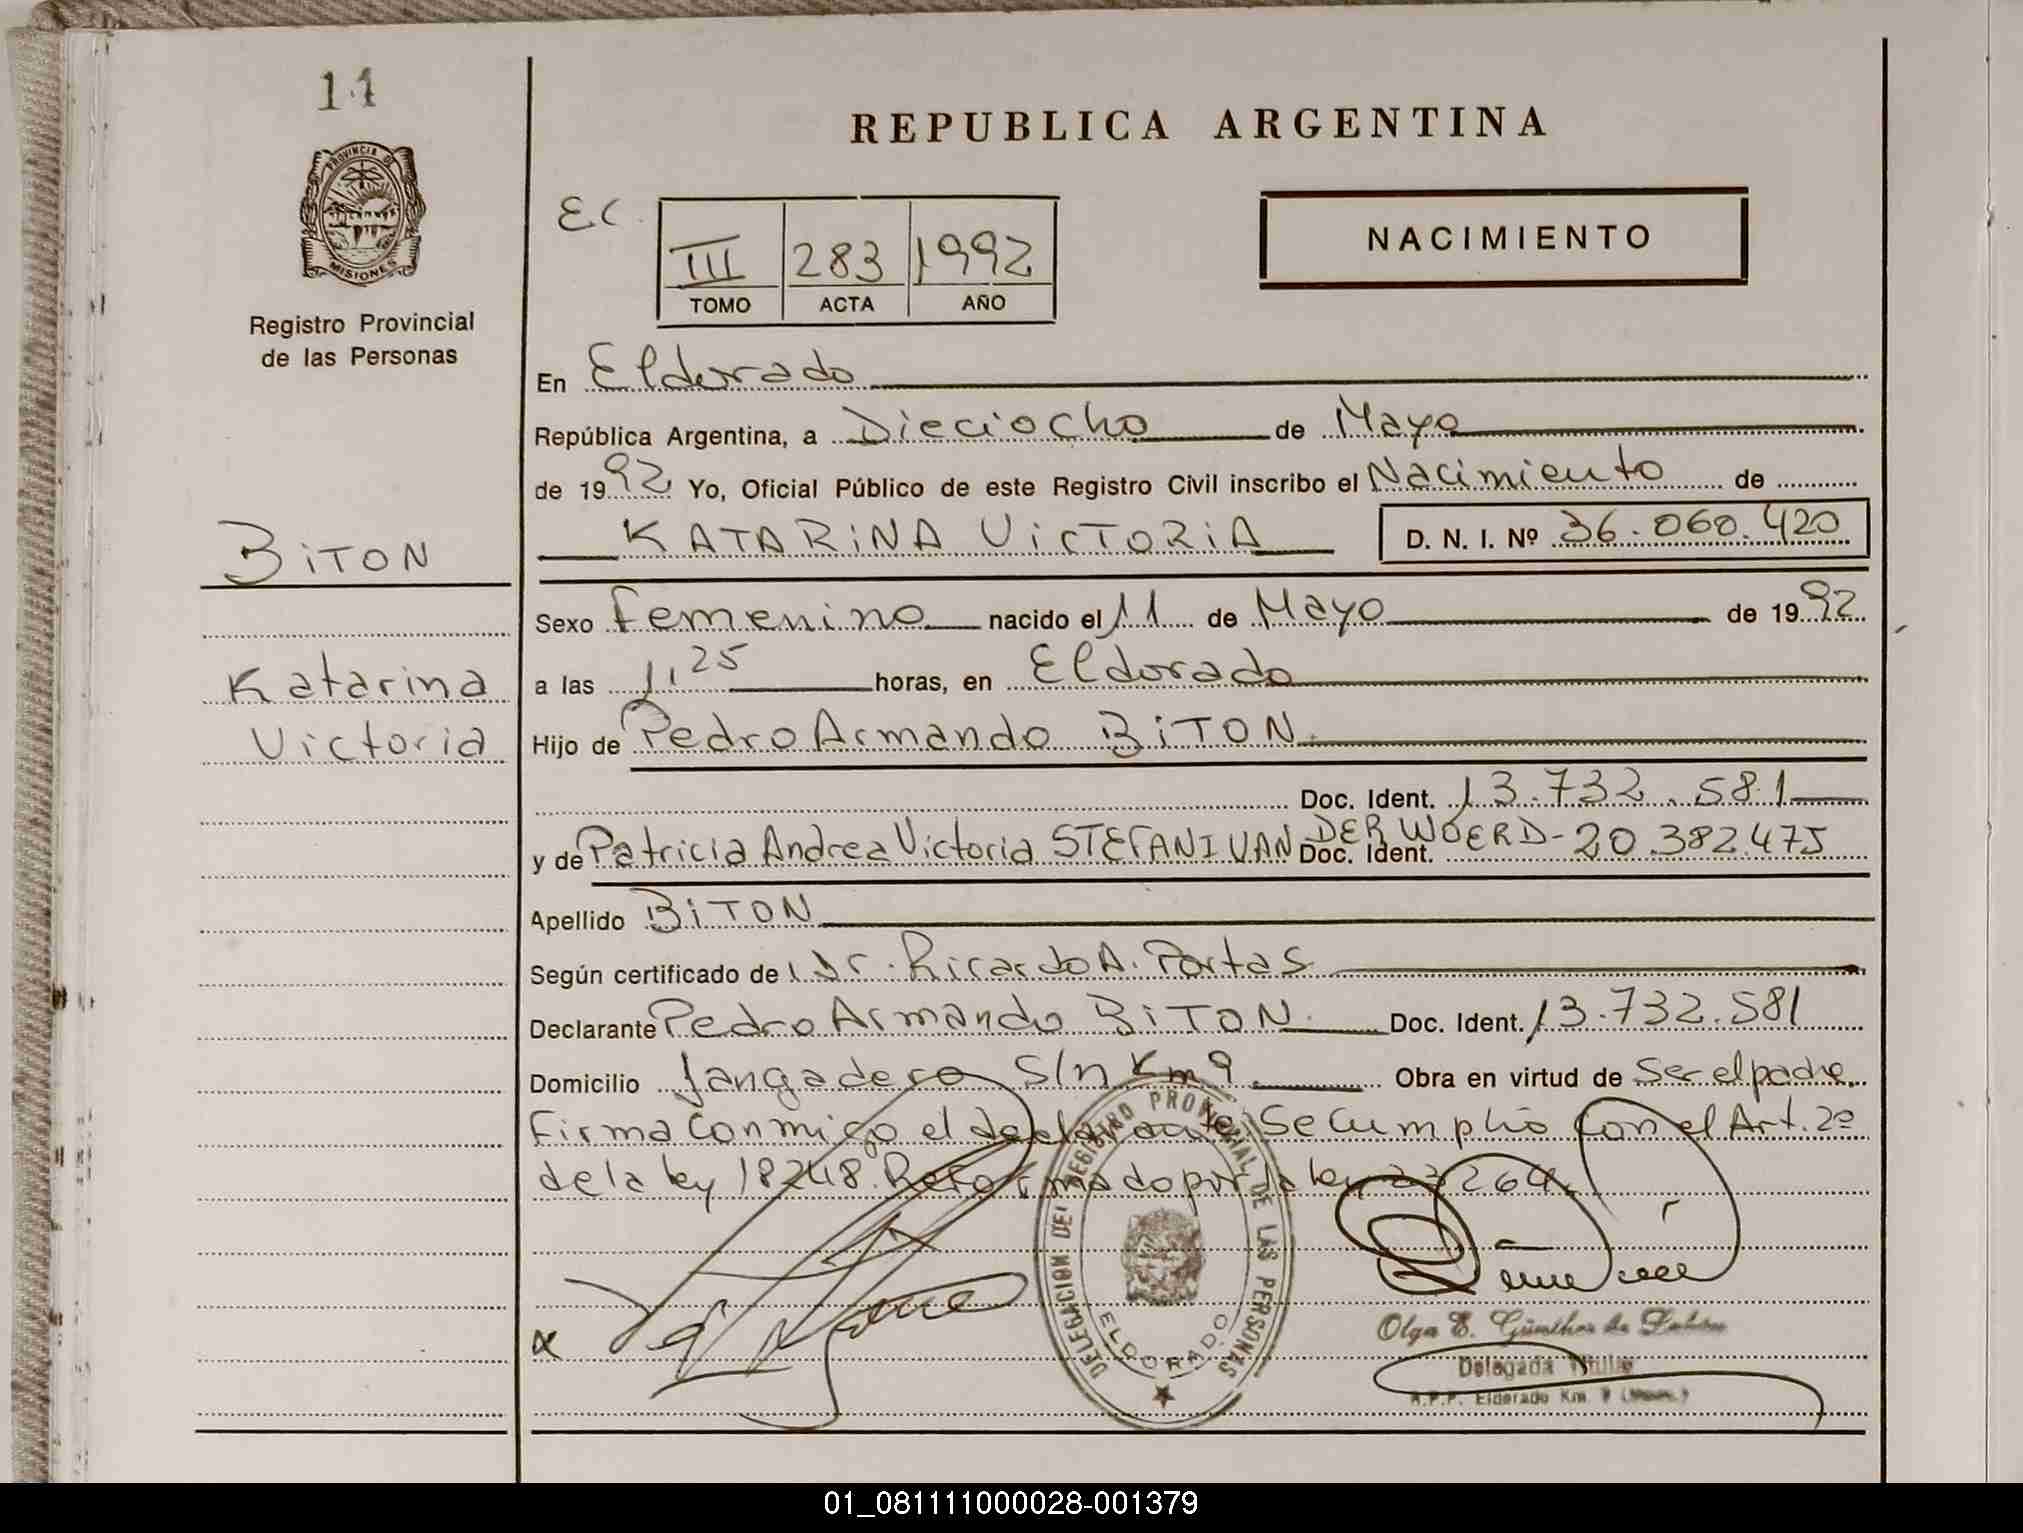 14
PROVINCIA DE
MISIONES
Registro Provincial
de las Personas
BiTON
Katarina
Victoria
REPUBLICA ARGENTINA
EC
III 283 1992
TOMO ACTA AÑO
NACIMIENTO
En Eldorado
República Argentina, a Dieciocho de Mayo
de 1992 Yo, Oficial Público de este Registro Civil inscribo el Nacimiento de
KATARiNA ViCTORiA D. N. I. Nº 36.060.420
Sexo Femenino nacido el 11 de Mayo de 1992
a las 1,25 horas, en Eldorado
Hijo de Pedro Armando BiTON
Doc. Ident. 13.732.581
y de Patricia Andrea Victoria STEFANI VAN DER WOERD- Doc. Ident. 20.382.475
Apellido BiTON
Según certificado de Dr. Ricardo A. Portas
Declarante Pedro Armando BiTON. Doc. Ident. 13.732.581
Domicilio Jangadero S/n Km 9 Obra en virtud de Ser el padre
Firma Conmigo el declarante, Se Cumplio Con el Art. 2º
de la ley 18248. Reformado por la ley
DELEGACION DEL REGISTRO PROVINCIAL DE LAS PERSONAS
ELDORADO
Olga E. Günther de
Delegada Titular
R.P.P. Eldorado Km. 9
01_081111000028-001379